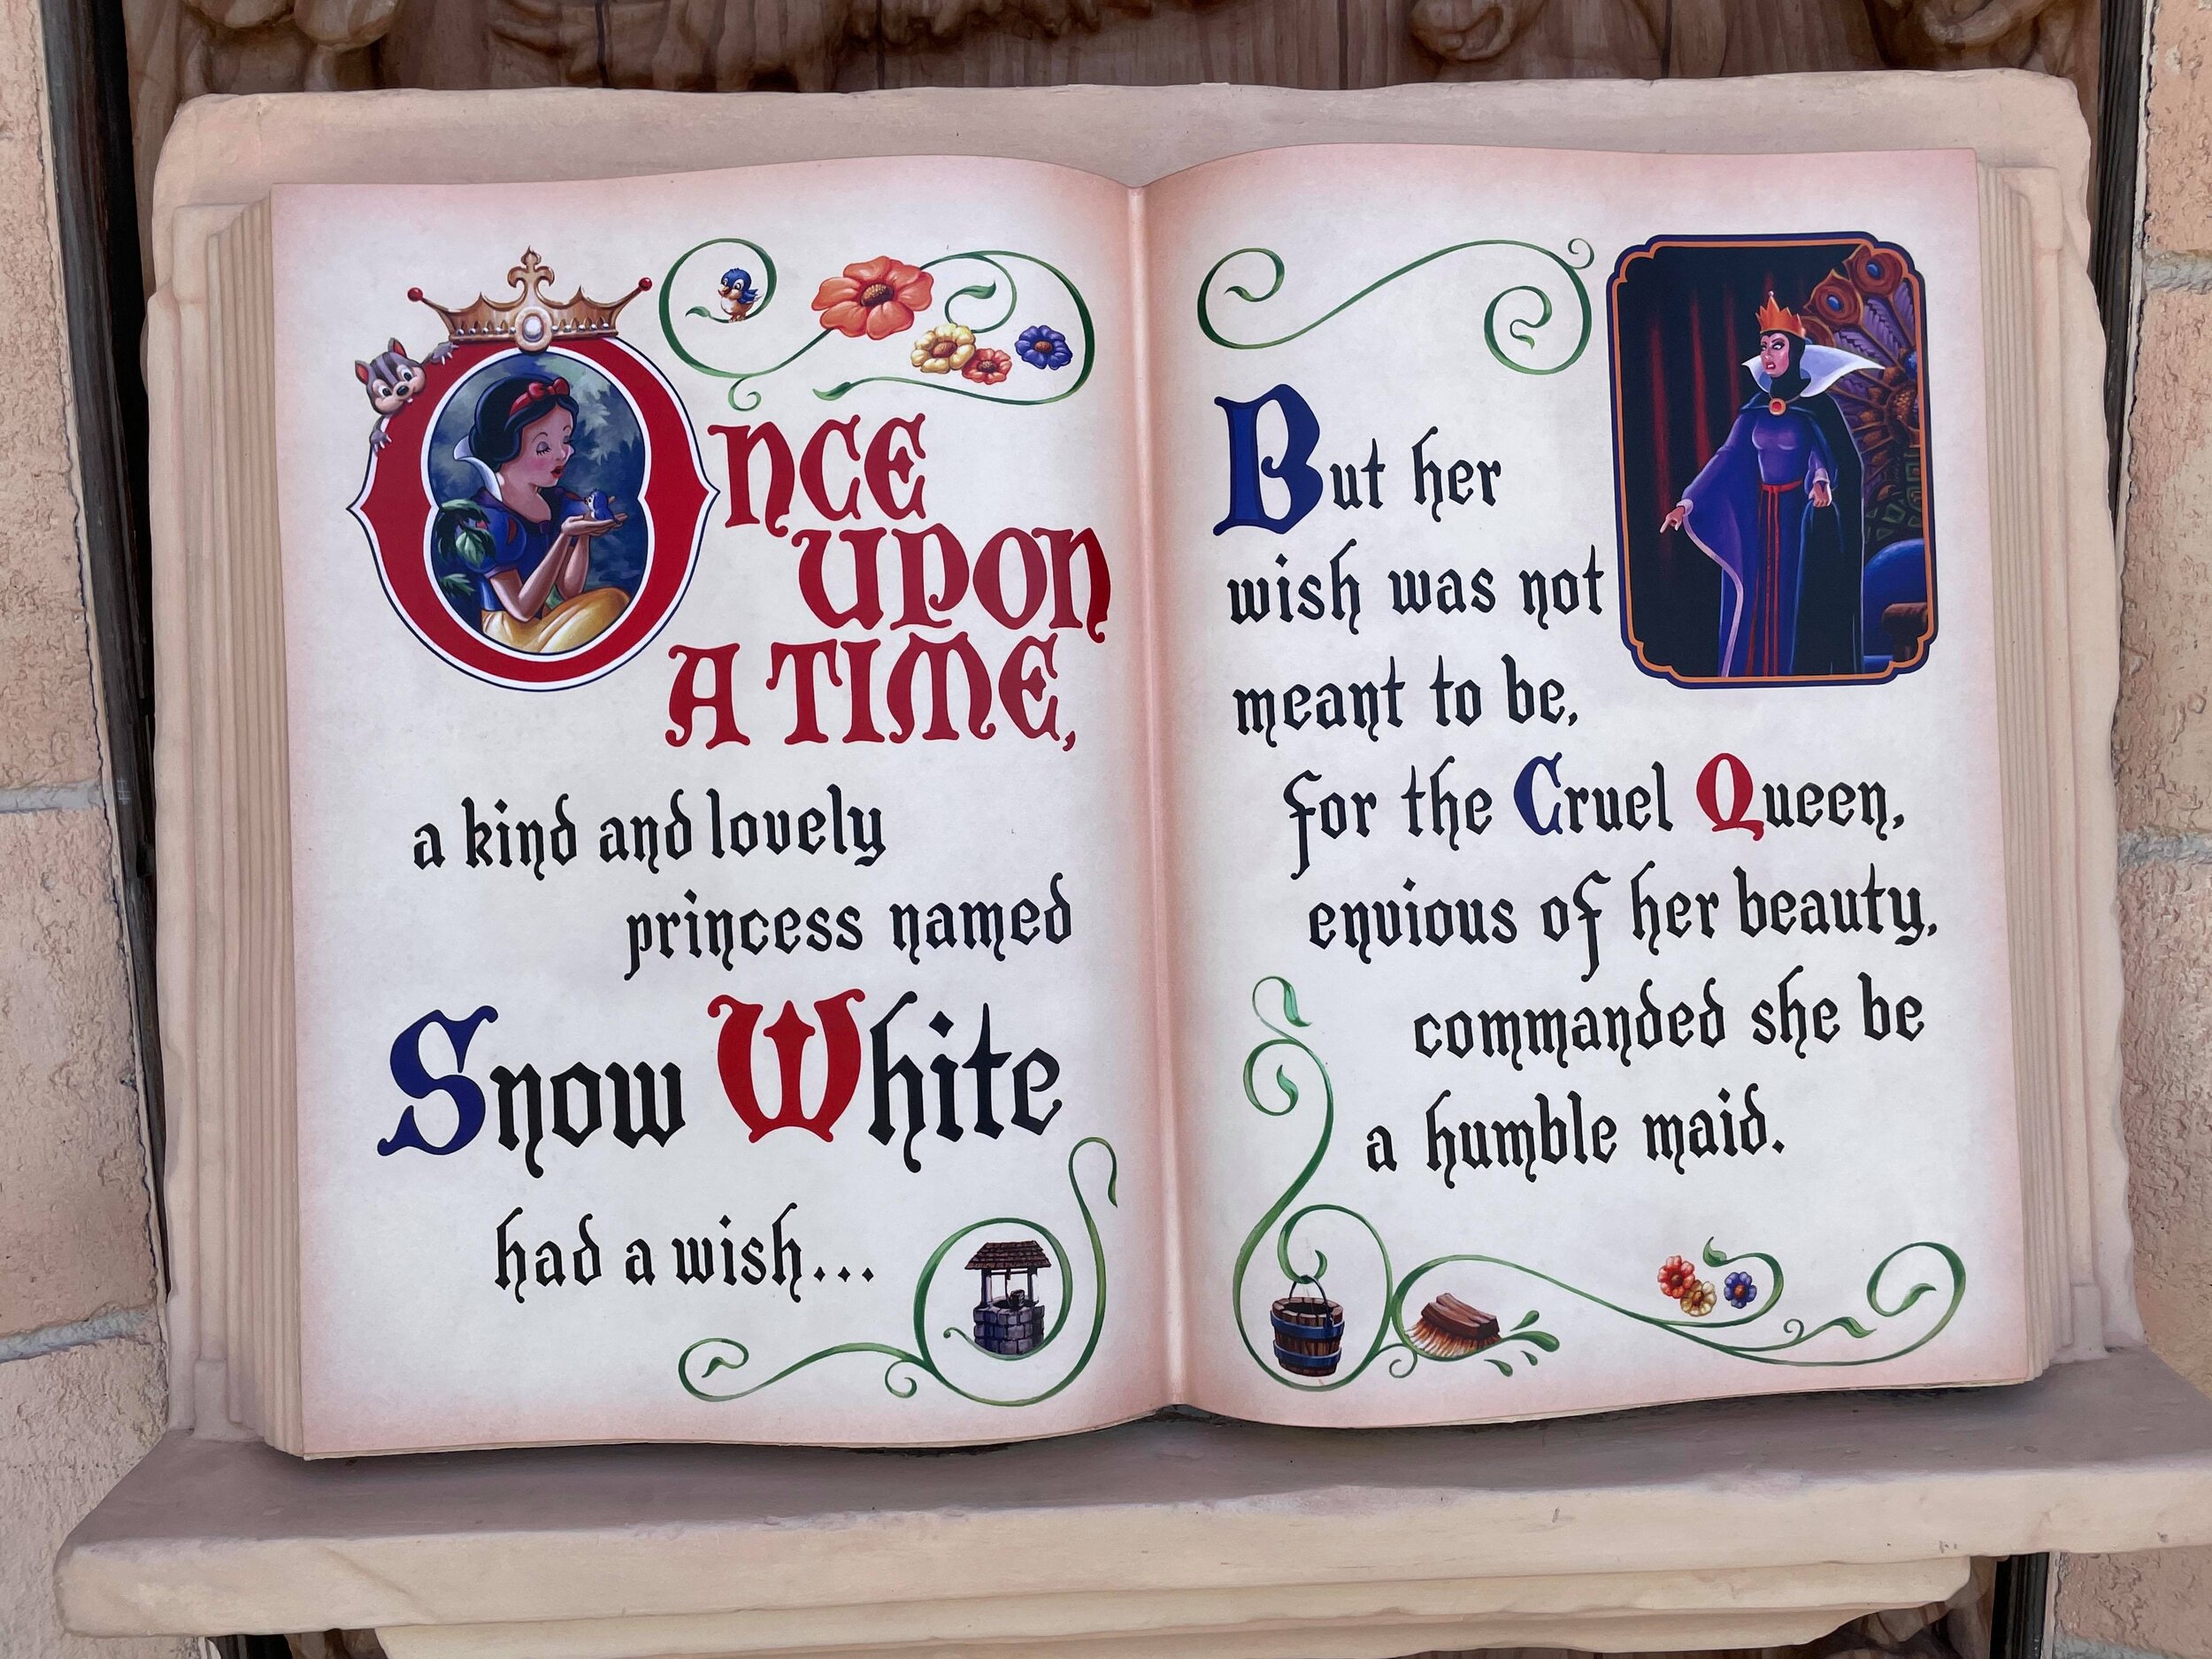 Once
upon
a time,
a kind and lovely
princess named
Snow White
had a wish...
But her
wish was not
meant to be,
for the Cruel Queen,
envious of her beauty,
commanded she be
a humble maid.